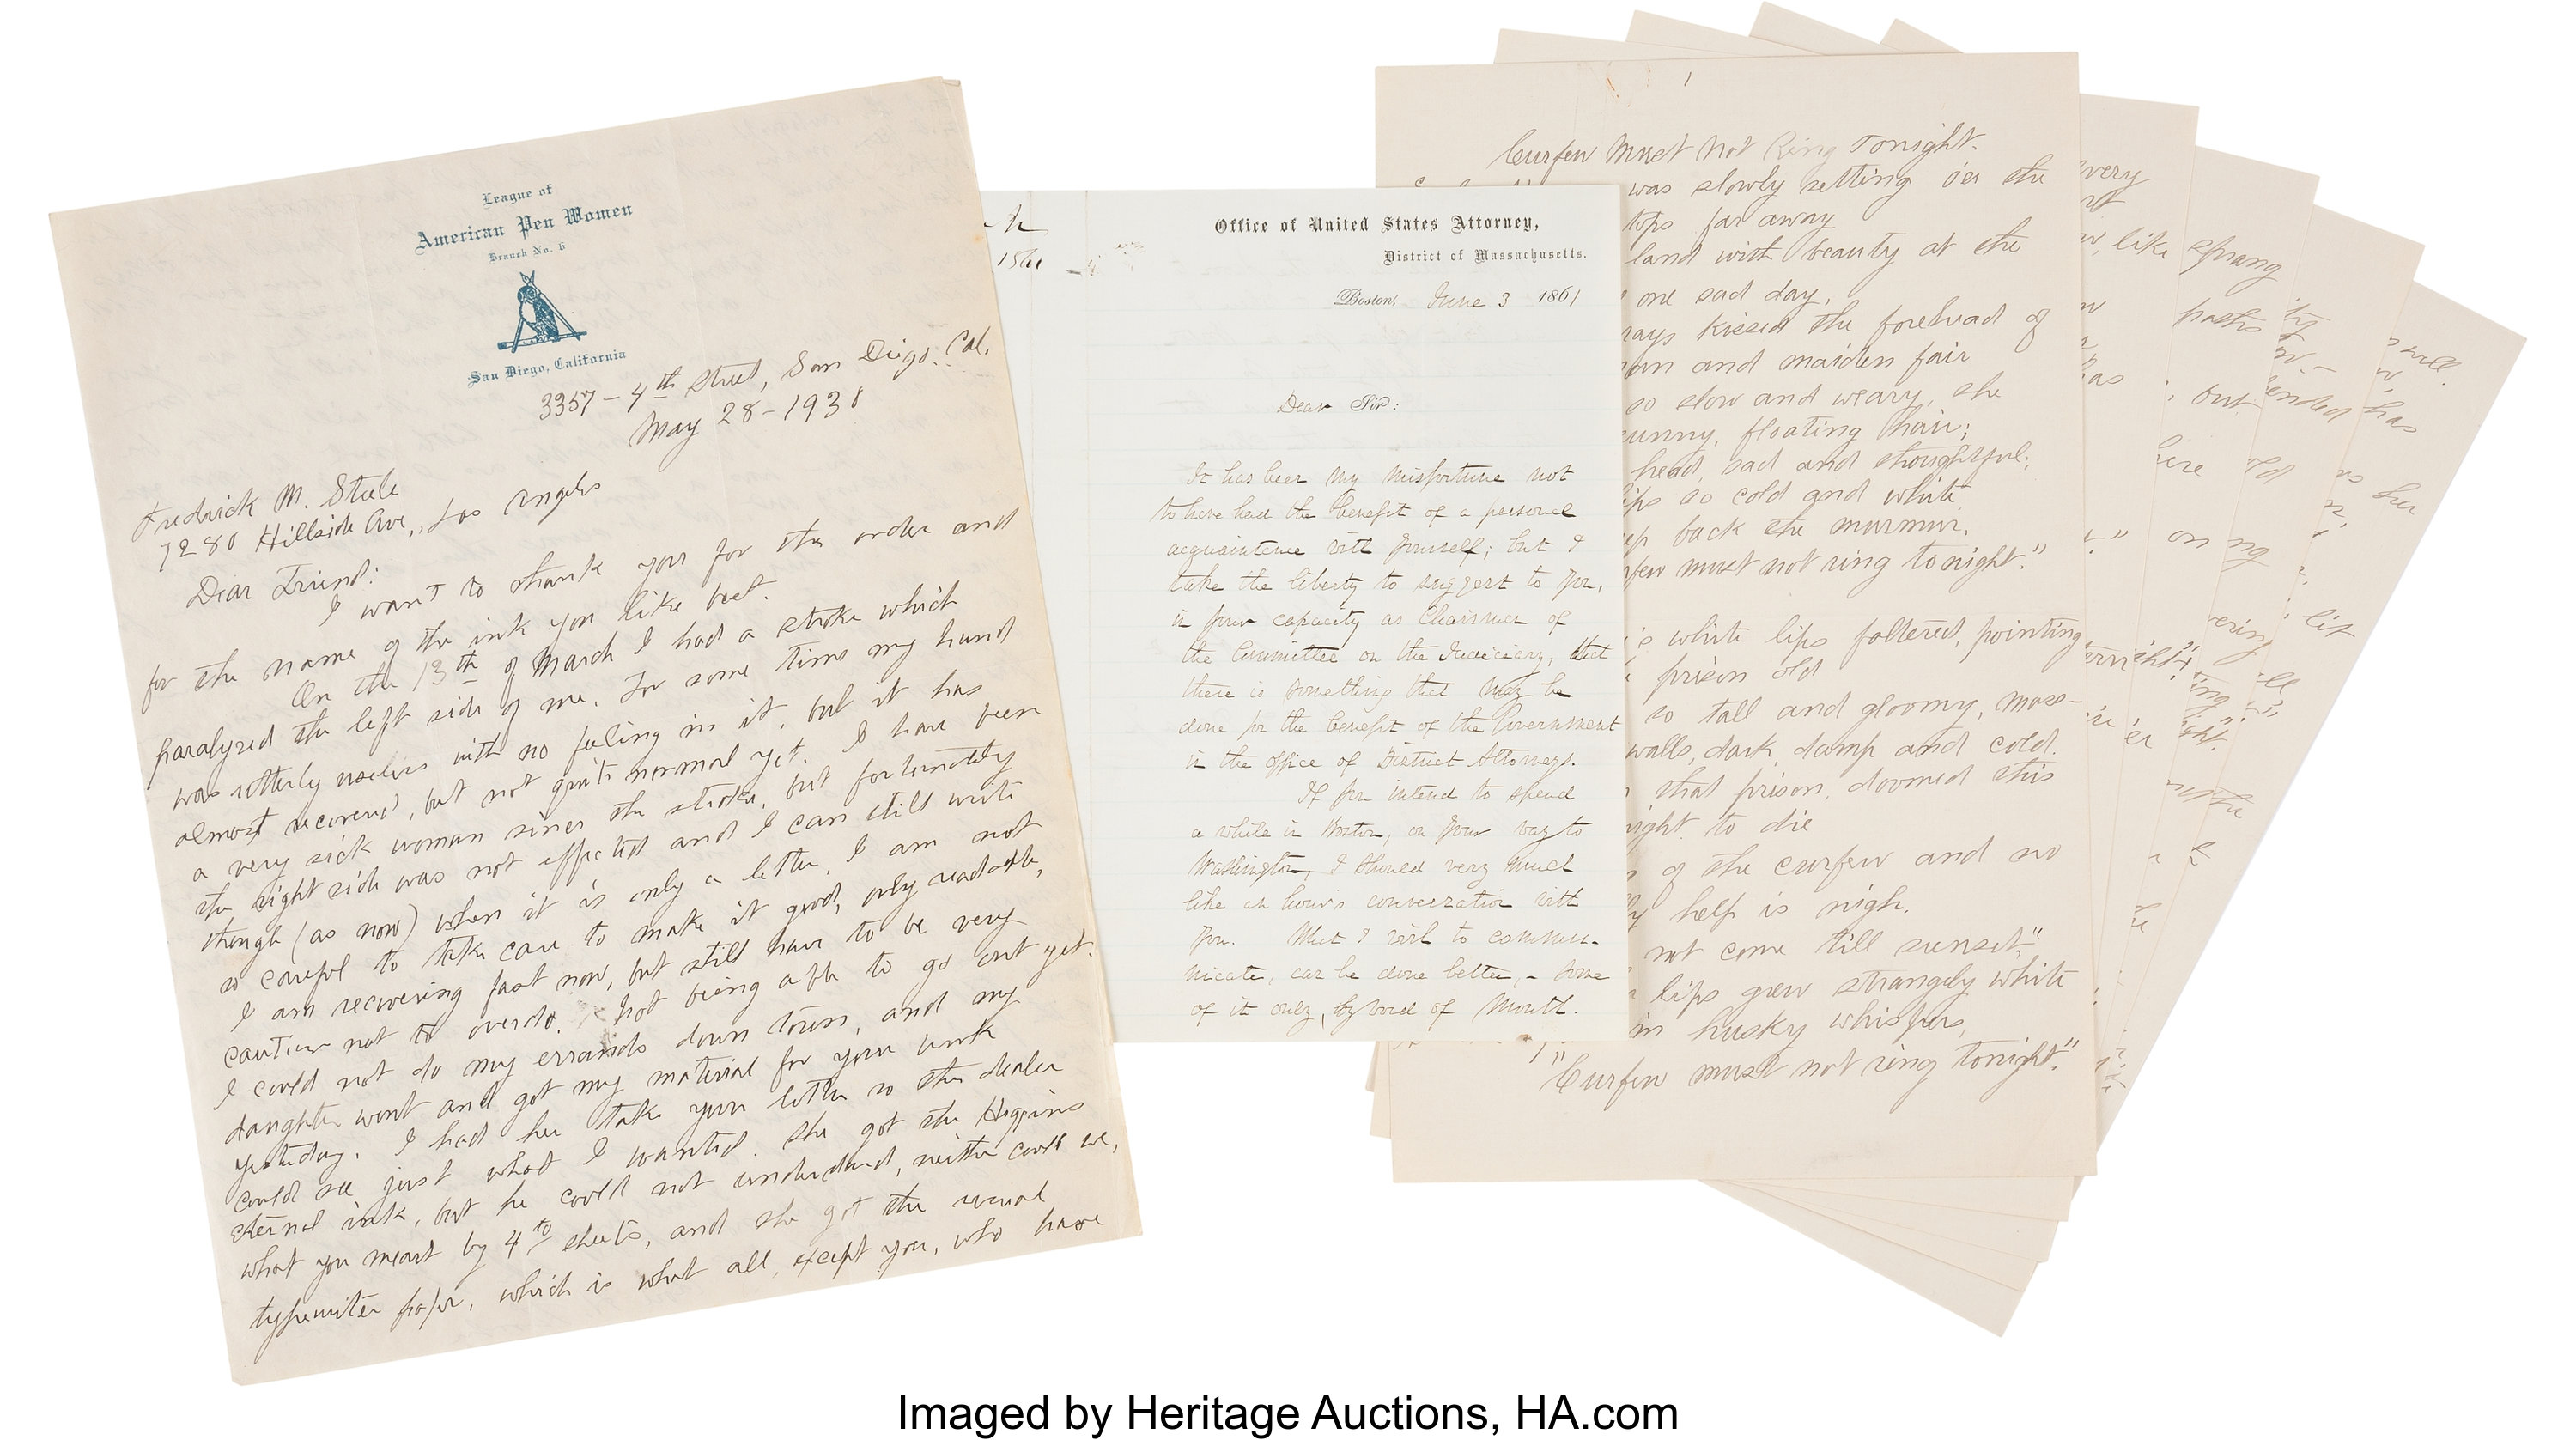 League of
American Pen Women
Branch No. 6
San Diego, California
3357 - 4th Street, San Diego. Cal.
May 28 - 1931
Fredrick M. Steele
7280 Hillside Ave., Los Angeles
Dear Friend:
I want to thank you for the order and
for the name of the ink you like best.
On the 13th of March I had a stroke which
paralyzed the left side of me. For some time my hand
was utterly useless with no feeling in it, but it has
almost recovered, but not quite normal yet. I have been
a very sick woman since the stroke, but fortunately
the right side was not effected and I can still write
though (as now) when it is only a letter, I am not
so careful to take care to make it good, only readable,
I am recovering fast now, but still have to be very
caution not to overdo. Not being able to go out yet.
I could not do my errands down town, and my
daughter went and got my material for your work
yesterday. I had her take your letter so the dealer
could see just what I wanted. She got the Higgins
eternal ink, but he could not understand, neither could we,
what you meant by 4to sheets, and she got the usual
typewriter paper, which is what all, except you, who have
1861
Office of United States Attorney,
District of Massachusetts.
Boston, June 3 1861
Dear Sir:
It has been my misfortune not
to have had the benefit of a personal
acquaintance with yourself; but I
take the liberty to suggest to you,
in your capacity as Chairman of
the Committee on the Judiciary, that
there is something that may be
done for the benefit of the Government
in the office of District Attorney.
If you intend to spend
a while in Boston, on your way to
Washington, I should very much
like an hour's conversation with
you. What I wish to commu-
nicate, can be done better, - some
of it only, by word of mouth.
1
Curfew Must Not Ring Tonight.
was slowly setting o'er the
tops far away
land with beauty at the
one sad day,
rays kissed the forehead of
and maiden fair
so slow and weary, she
sunny, floating hair;
head, sad and thoughtful,
lips so cold and white
back the murmur,
must not ring tonight."
's white lips faltered, pointing
prison old
so tall and gloomy, moss-
walls, dark, damp and cold.
that prison, doomed this
night to die
of the curfew and no
help is nigh.
not come till sunset"
lips grew strangely white
in husky whispers,
"Curfew must not ring tonight."
very
like
sprang
has
out
old
on
lit
her
Imaged by Heritage Auctions, HA.com